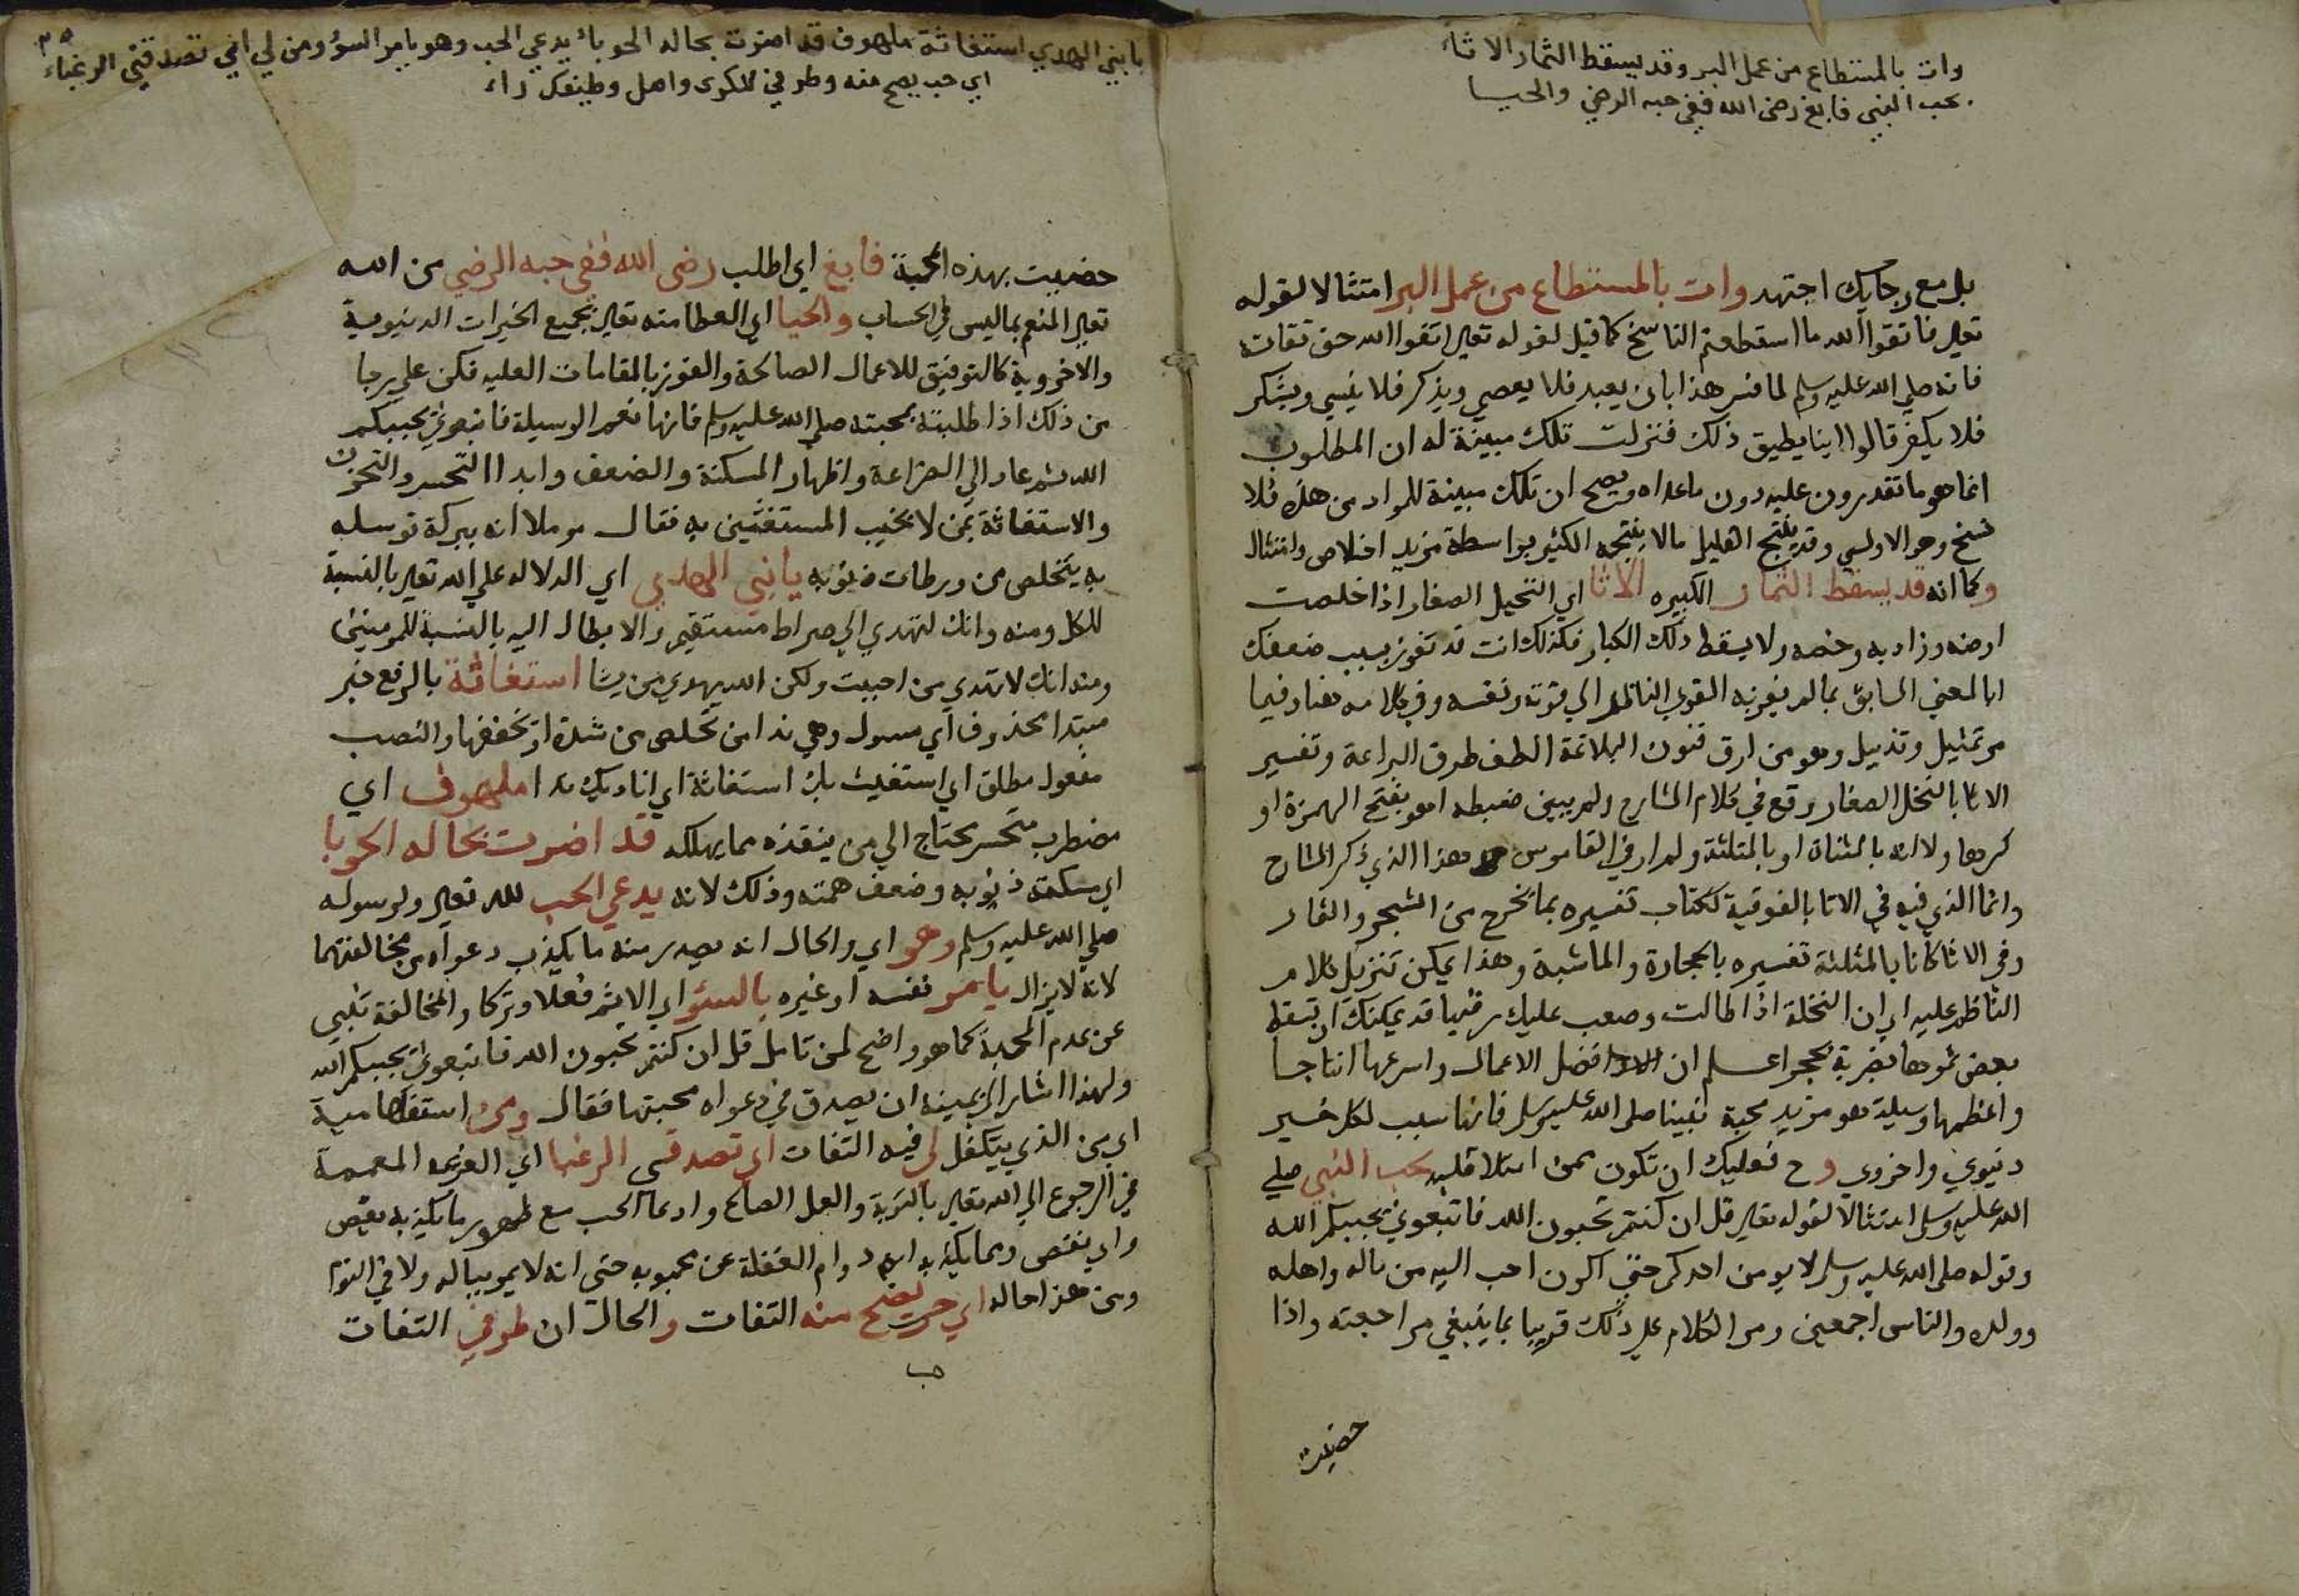 وات بالمستطاع من عمل البر وقد يسقط الثمار الاثاء
بحب النبي فابغ رضى الله ففي حبه الرضى والحبا
بل مع رجايك اجتهد وات بالمستطاع من عمل البر امتثالا لقوله
تعالي فاتقوا الله ما استطعتم الناسخ كما قيل لقوله تعالي اتقوا الله حق تقاته
فانه صلي الله عليه وسلم لما فسر هذا بان يعبد فلا يعصي ويذكر فلا ينسي ويشكر
فلا يكفر قالوا اينا يطيق ذلك فنزلت تلك مبينة له ان المطلوب
انما هو ما تقدرون عليه دون ما عداه ويصح ان تلك مبينة للمراد من هذه فلا
نسخ وهو الاولي وقد ينتج القليل مالا ينتجه الكثير بواسطة مزيد اخلاص وامتثال
وكما انه قد يسقط الثمار الكبيره الاثا اي النخيل الصغار اذا خلصت
ارضه وزاد به وخصه ولا يسقط ذلك الكبار فكذلك انت قد تفوز بسبب ضعفك
بالمعني السابق بما لم يفز به القوي الناظر الي قوته ونفسه وفي كلامه هنا وفيما
مر تمثيل وتذييل وهو من ارق فنون البلاغة الطف طرق البراعة وتفسير
الاثا بالنخل الصغار وقع في كلام الشارح ولم يبين ضبطه اهو بفتح الهمزة او
كسرها ولا انه بالمثناة او بالمثلثة ولم ار في القاموس هذا الذي ذكر الشارح
وانما الذي فيه في الاتا بالفوقية ككتاب تفسيره بما يخرج من الشجر والثمار
وفي الاثا كانا بالمثلثة تفسيره بالحجارة والماشية وهذا يمكن تنزيل كلام
الناظم عليه اي ان النخلة اذا طالت وصعب عليك رقيها قد يمكنك ان تسقط
بعض ثمرها بضربة بحجر اعلم ان افضل الاعمال واسرعها انتاجا
واعظمها وسيلة هو مزيد محبة نبينا صلي الله عليه وسلم فانها سبب لكل خير
دنيوي واخروي وح فعليك ان تكون ممن امتلا قلبه بحب النبي صلي
الله عليه وسلم امتثالا لقوله تعالي قل ان كنتم تحبون الله فاتبعوني يحببكم الله
وقوله صلي الله عليه وسلم لا يومن احدكم حتي اكون احب اليه من ماله واهله
وولده والناس اجمعين ومر الكلام علي ذلك قريبا بما ينبغي مراجعته واذا
حضيت
يا نبي الهدي استغاثة ملهوف قد اضرت بحاله الحوباء يدعي الحب وهو يامر السوء ومن لي ان تصدقني الرغباء
اي حب يصح منه وطرفي للكرى واصل وطيفك راء
حضيت بهذه المحبة فابغ اي اطلب رضى الله ففي حبه الرضي من الله
تعالي المنعم بما ليس في الحساب والحبا اي العطا منه تعالي بجميع الخيرات الدنيوية
والاخروية كالتوفيق للاعمال الصالحة والفوز بالمقامات العليه فكن علي رجا
من ذلك اذا طلبته بمحبته صلي الله عليه وسلم فانها نعم الوسيلة فاتبعوني يحببكم
الله ثم عاد الي الضراعة واظهار المسكنة والضعف وابدا التحسر والتحزن
والاستغاثة بمن لا يخيب المستغثين به فقال موملا انه ببركة توسله
به يتخلص من ورطات ذنوبه يا نبي الهدي اي الدلاله علي الله تعالي بالنسبة
للكل ومنه وانك لتهدي الي صراط مستقيم والايصال اليه بالنسبة للمومنين
ومنه انك لا تهدي من احببت ولكن الله يهدي من يشا استغاثة بالرفع خبر
مبتدا محذوف اي مسول وهي ندا من يخلص من شدة او يخففها والنصب
مفعول مطلق اي استغيث بك استغاثة اي اناديك ندا ملهوف اي
مضطرب متحسر يحتاج الي من ينقذه مما يهلكه قد اضرت بحاله الحوبا
اي مسكنة ذنوبه وضعف همته وذلك لانه يدعي الحب لله تعالي ولرسوله
صلي الله عليه وسلم وهو اي والحال انه يصدر منه ما يكذب دعواه من مخالفتهما
لانه لا يزال يامر نفسه او غيره بالسوء اي الاثم فعلا وتركا والمخالفة تنبي
عن عدم المحبة كما هو واضح لمن تامل قل ان كنتم تحبون الله فاتبعوني يحببكم الله
ولهذا اشار الي تمنيه ان يصدق في دعواه محبتها فقال ومن استفهامية
اي من الذي يتكفل لي فيه التفات ان تصدقني الرغبا اي العزيمة المصممة
في الرجوع الي الله تعالي بالتوبة والعمل الصالح وادعا الحب مع ظهور ما يكذبه نقص
واي نقص ومما يكذبه دوام الغفلة عن محبوبه حتى انه لا يمر بباله ولا في النوم
ومن هذا حاله اي حب يصح منه التفات والحال ان طرفي التفات